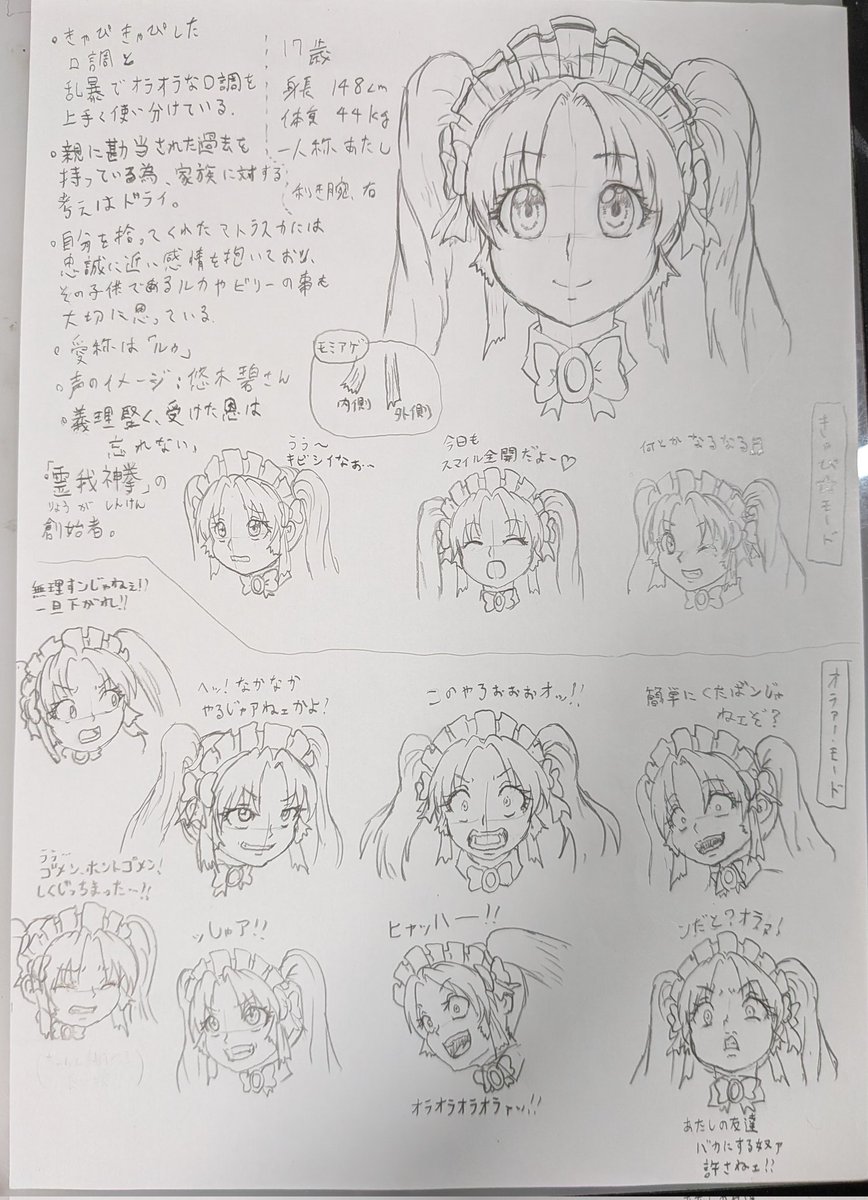 ・きゃぴきゃぴした
口調と
乱暴でオラオラな口調を
上手く使い分けている.
・親に勘当された過去を
持っている為、家族に対する
考えはドライ。
・自分を拾ってくれたマトラスカには
忠誠に近い感情を抱いており、
その子供であるルカやビリーの事も
大切に思っている.
・愛称は「ルゥ」
・声のイメージ:悠木碧さん
・義理堅く、受けた恩は
忘れない、
「霊我神拳」の
りょうがしんけん
創始者。
17歳
身長 148cm
体重 44kg
一人称 あたし
利き腕、右
モミアゲ
内側
外側
きゃぴ☆モード
うぅ〜
キビシイなぁ…
今日も
スマイル全開だよー♡
何とかなるなる♬
オラァ・モード
無理すンじゃねぇ!!
一旦下がれ!!
ヘッ!なかなか
やるじゃァねェかよ!
このやろおおおオッ!!
簡単にくたばンじゃ
ねェぞ?
うぅ〜
ゴメン、ホントゴメン!
しくじっちまった〜!!
ッしゃァ!!
ヒャッハー!!
オラオラオラオラァッ!!
ンだと?オラァ!
あたしの友達
バカにする奴ァ
許さねェ!!